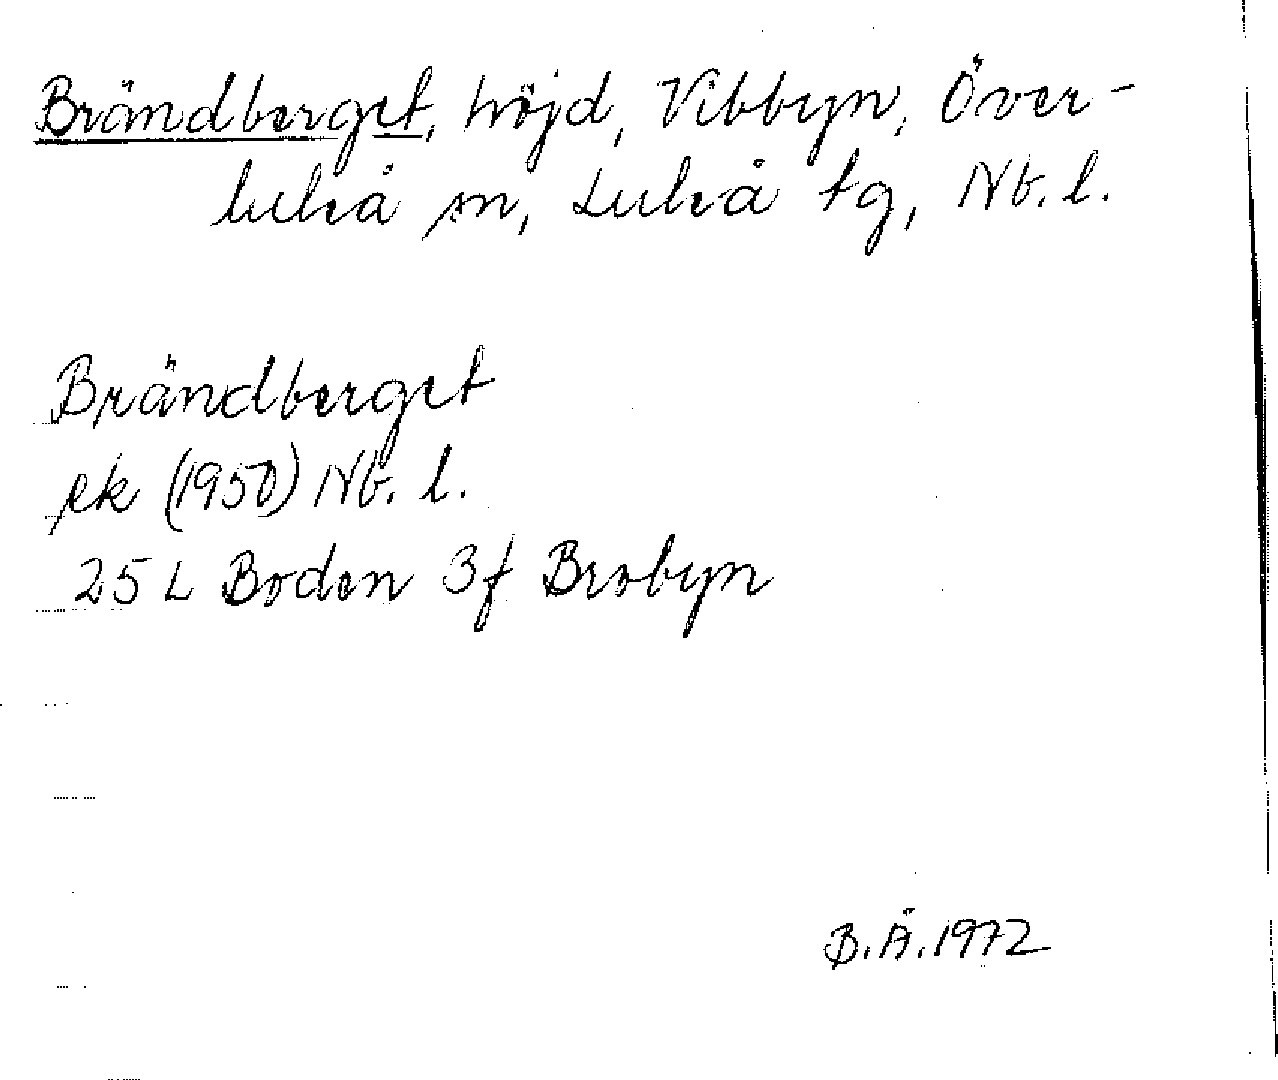 Brändberget, höjd, Vibbyn, Över-
luleå sn, Luleå tg, Nb. l.
Brändberget
ek (1950) Nb. l.
25 L Boden 3f Brobyn
B.Ä. 1972